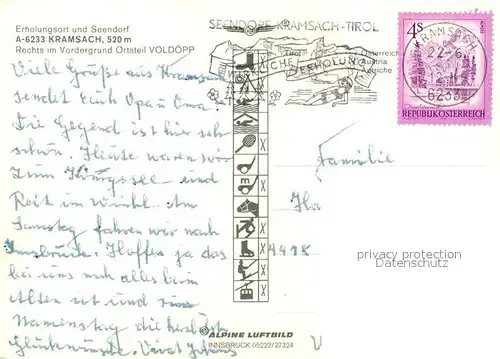 Erholungsort und Seendorf
A-6233 KRAMSACH, 520 m
Rechts im Vordergrund Ortsteil VOLDÖPP
SEENDORF KRAMSACH-TIROL
Tirol
Österreich
Austria
Autriche
ERHOLUNG
KRAMSACH
6233
4s
REPUBLIK ÖSTERREICH
Viele Grüße aus Kramsach
sendet Euch Opa u Oma.
Die Gegend ist hier sehr
schön. Heute waren wir
zum Königssee und
Reit im Winkl. Am
Samstag fahren wir nach
Innsbruck. Hoffen ja das
bei uns noch alles beim
Alten ist und zum
Namenstag die herzlichsten
Glückwünsche.
Familie
m
privacy protection
Datenschutz
ALPINE LUFTBILD
INNSBRUCK 05222/27324